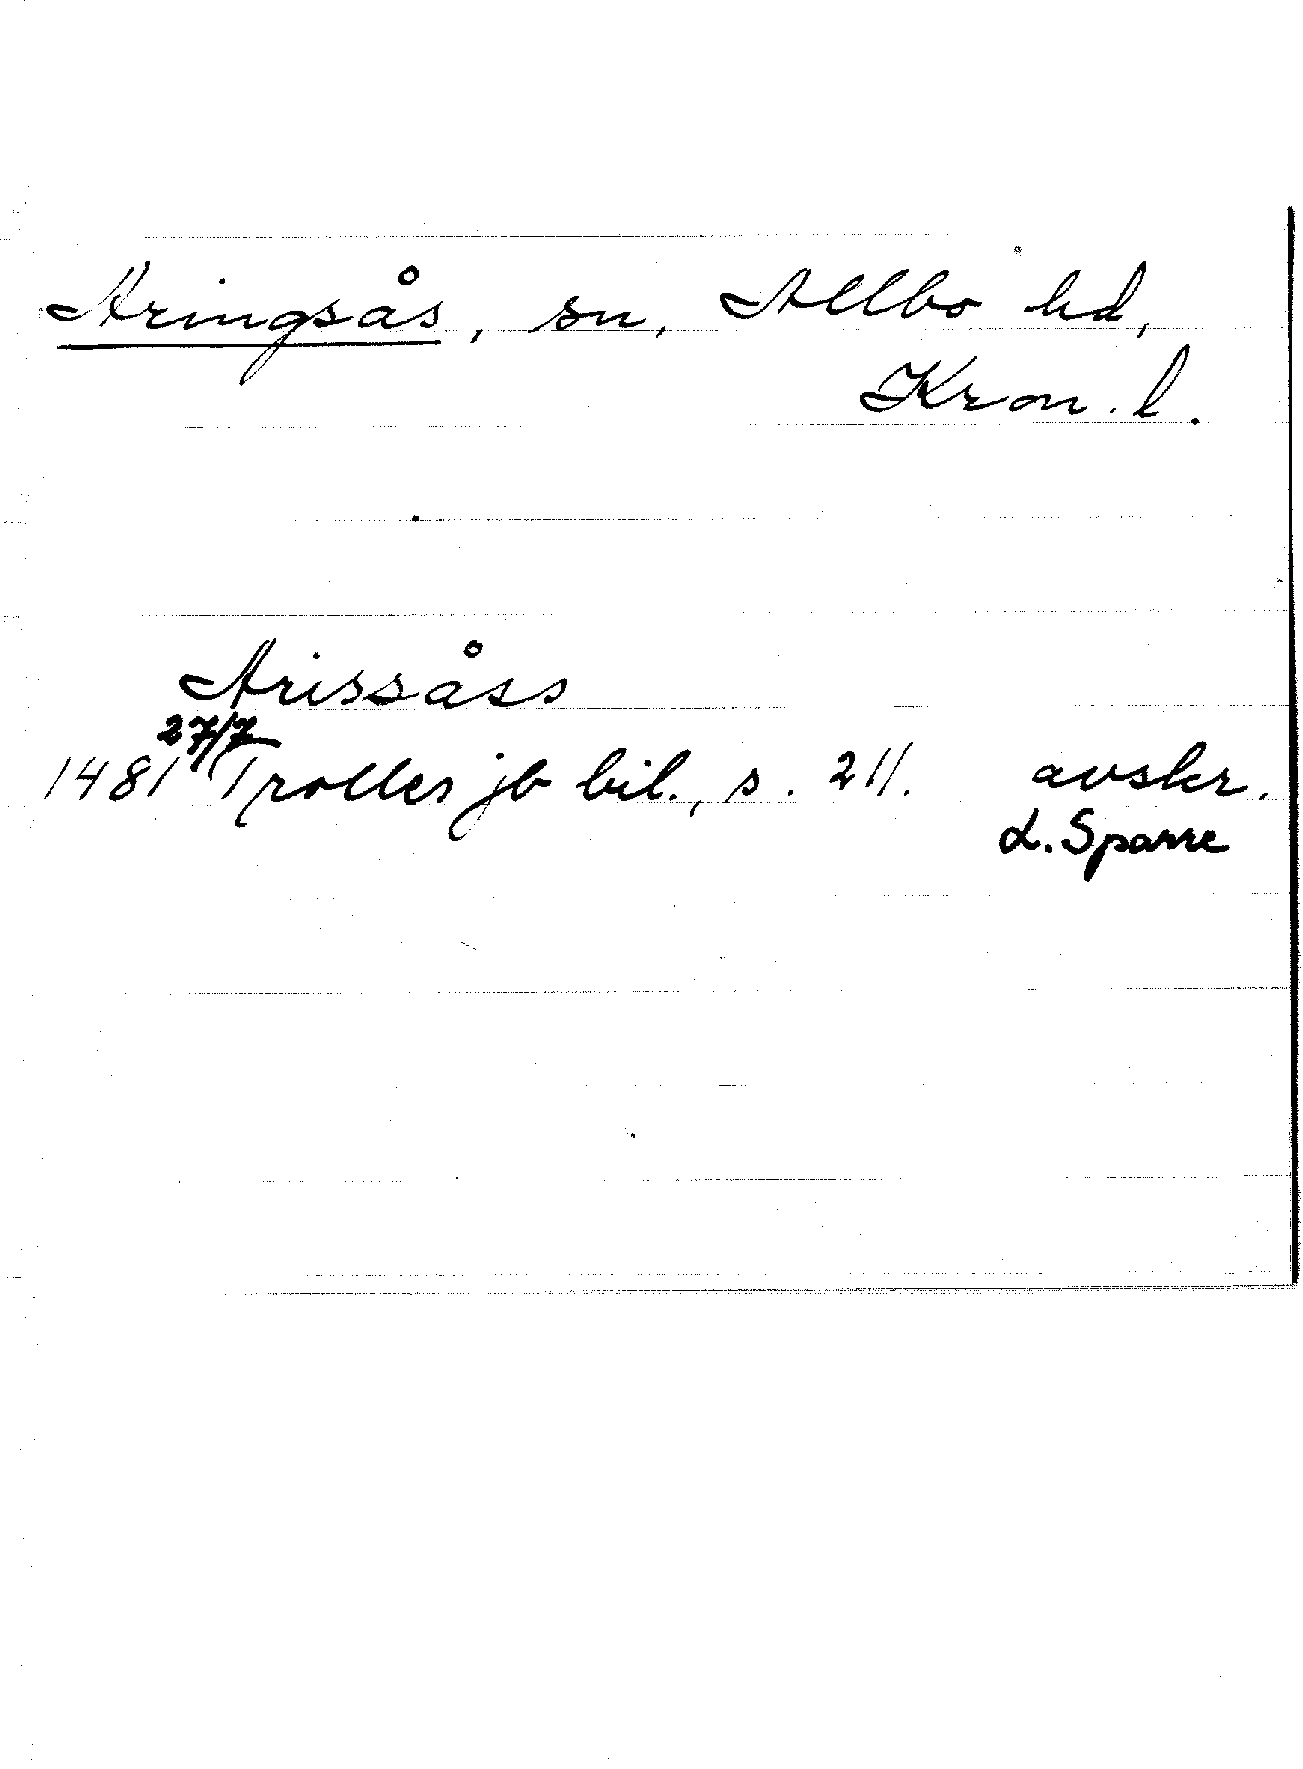 Aringsås, sn, Allbo hd,
Kron. l.
Arissåss
27/7
1481 Trolles jb bil., s. 211. avskr.
L. Sparre